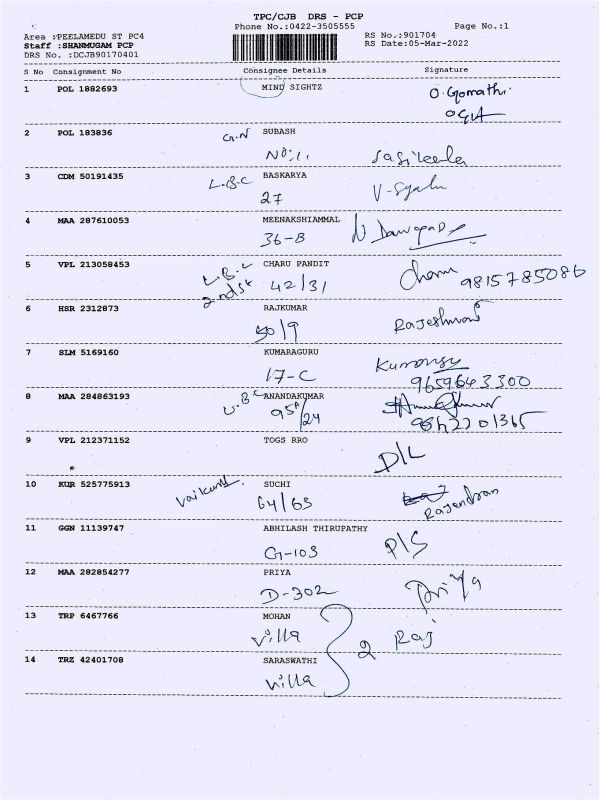 TPC/CJB DRS - PCP
Phone No.:0422-3505555 Page No.:1
Area :PEELAMEDU ST PC4 RS No.:901704
Staff :SHANMUGAM PCP RS Date:05-Mar-2022
DRS No. :DCJB90170401
S No Consignment No Consignee Details Signature
1 POL 1882693 MIND SIGHTZ O.Gomathi
2 POL 183836 G.N SUBASH
No:1. Sasileela
3 CDM 50191435 L.B.C BASKARYA
27 V-Syalu
4 MAA 287610053 MEENAKSHIAMMAL
36-B
5 VPL 213058453 L.B.C CHARU PANDIT
2nd St 42/31 Charu 9815785086
6 HSR 2312873 RAJKUMAR
50/9 Rajeshwari
7 SLM 5169160 KUMARAGURU
17-C 9659643300
8 MAA 284863193 ANANDAKUMAR
95A/24
9 VPL 212371152 TOGS RRO
D/L
10 KUR 525775913 SUCHI
64/63 Rajendran
11 GGN 11139747 ABHILASH THIRUPATHY
G-103 P/S
12 MAA 282854277 PRIYA
D-302 Priya
13 TRP 6467766 MOHAN
Villa 2 Raj
14 TRZ 42401708 SARASWATHI
Villa